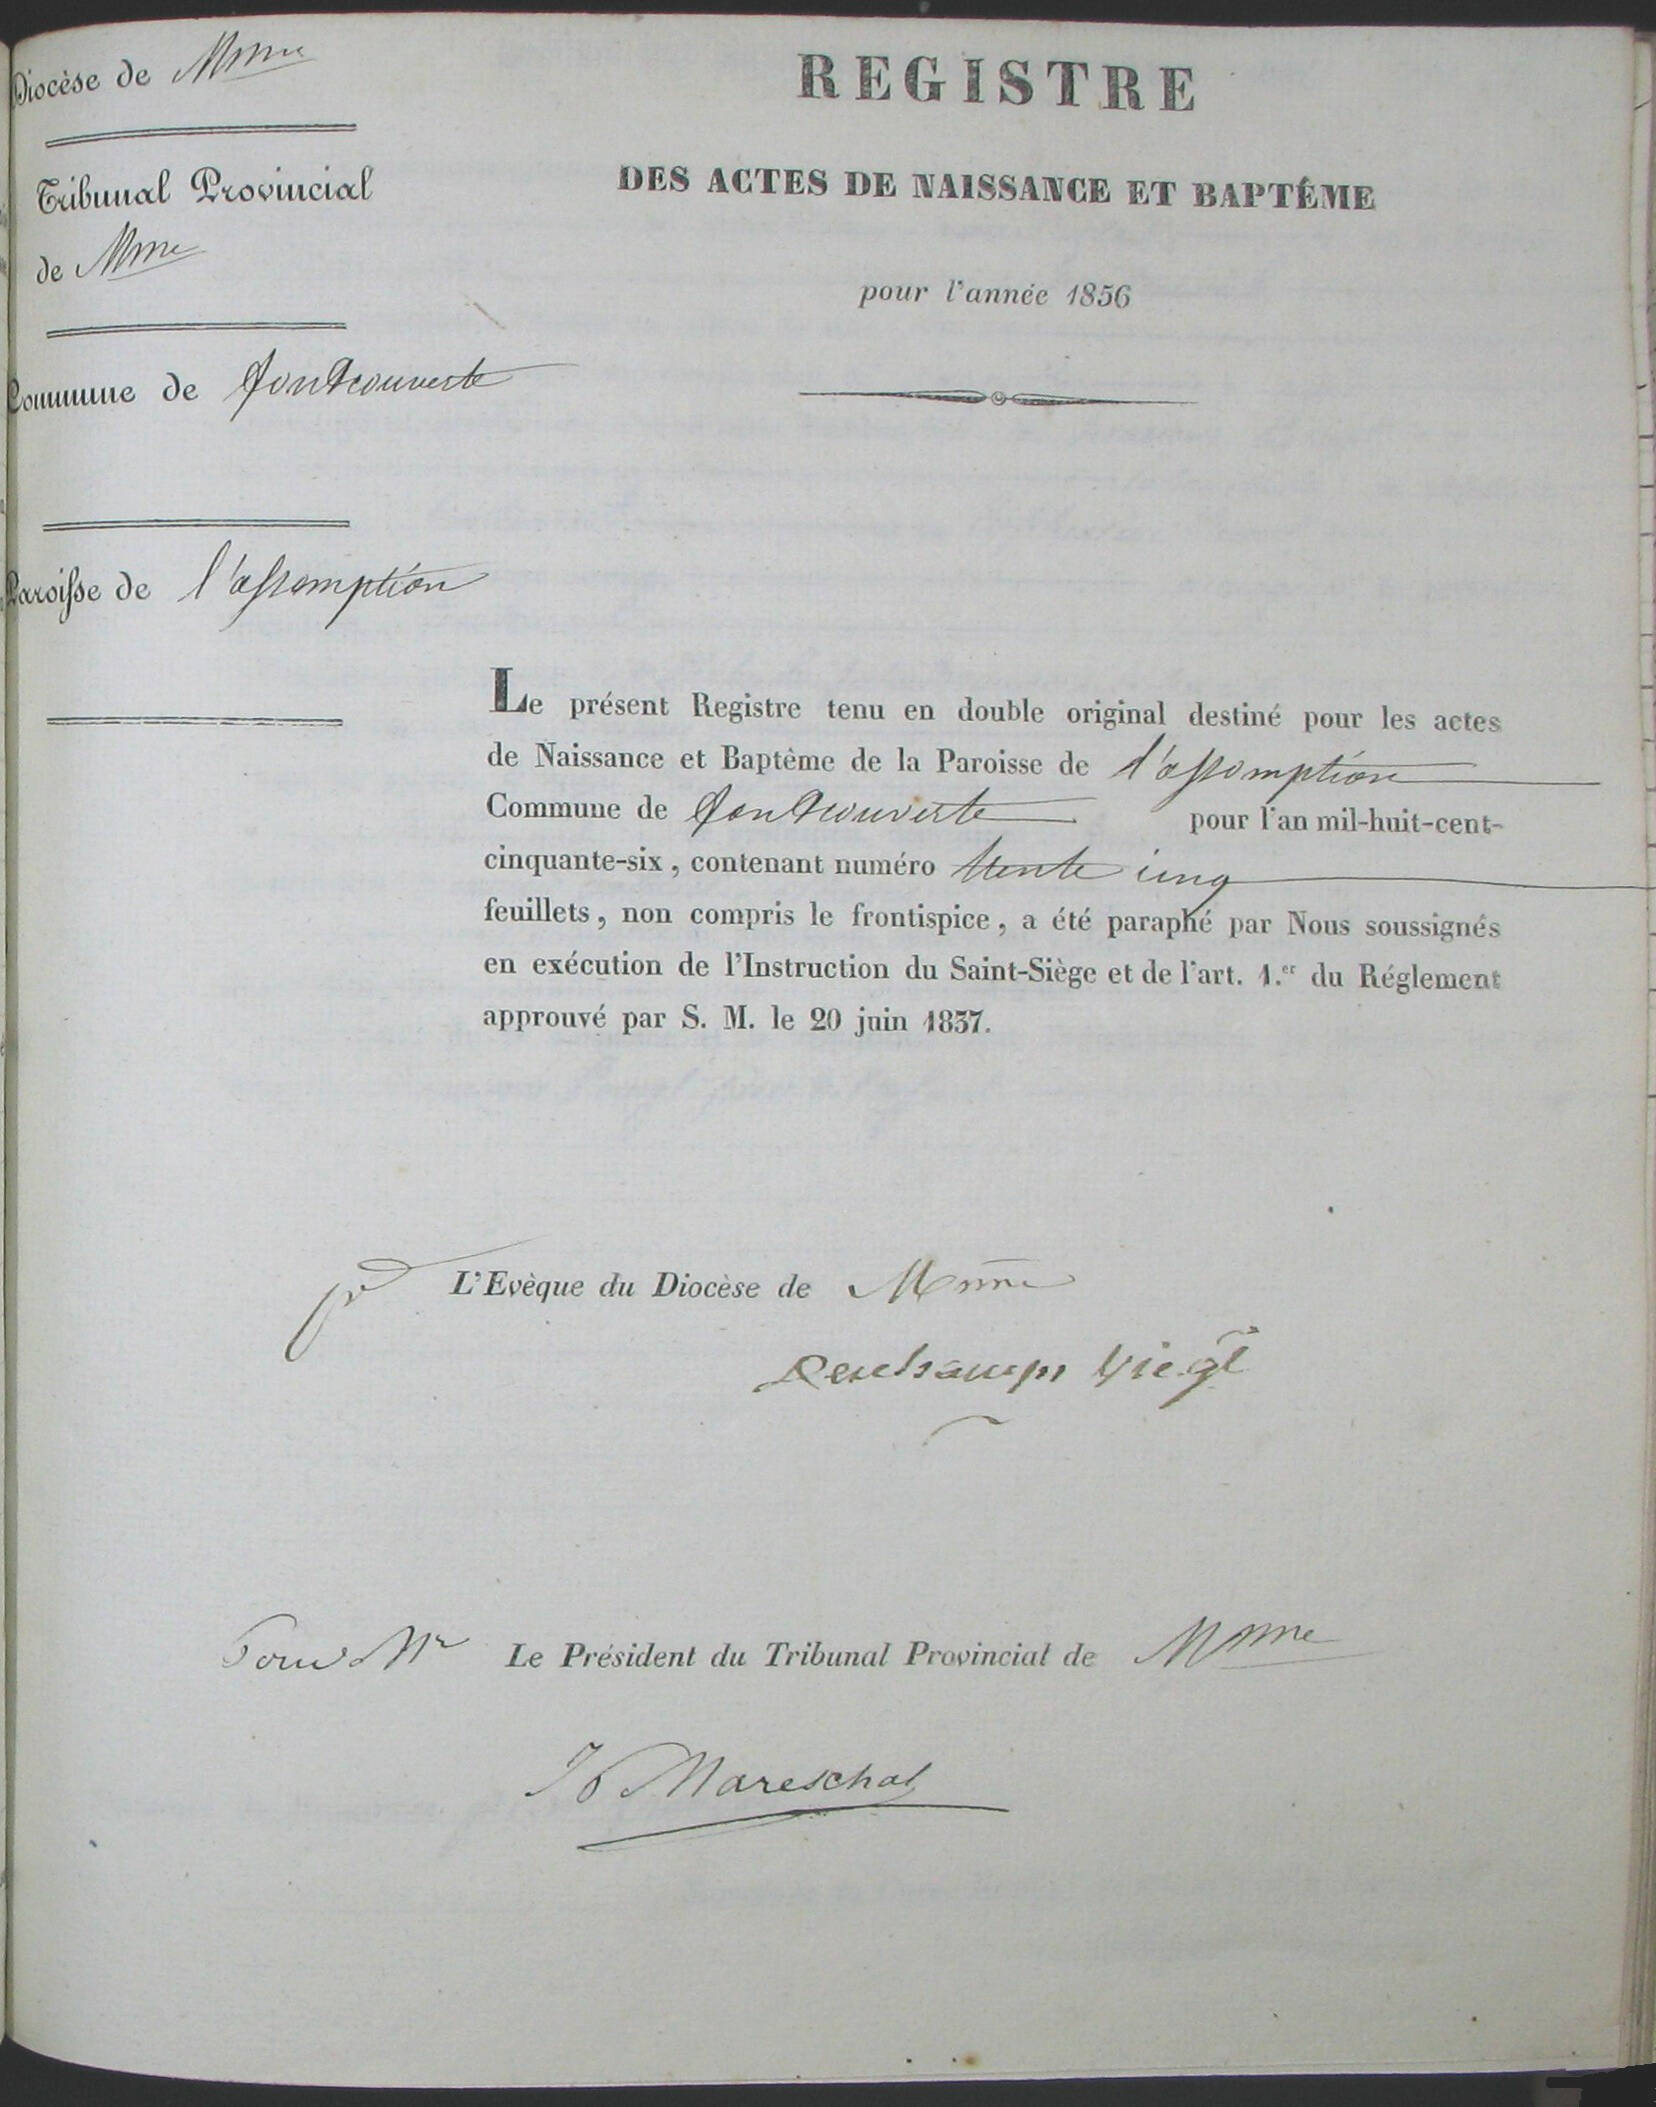 Diocèse de Mnne
Tribunal Provincial
de Mnne
Commune de fontcouverte
Paroisse de l'assomption
REGISTRE
DES ACTES DE NAISSANCE ET BAPTÊME
pour l'année 1856
Le présent Registre tenu en double original destiné pour les actes
de Naissance et Baptême de la Paroisse de l'assomption
Commune de fontcouverte pour l'an mil-huit-cent-
cinquante-six, contenant numéro trente cinq
feuillets, non compris le frontispice, a été paraphé par Nous soussignés
en exécution de l'Instruction du Saint-Siège et de l'art. 1.er du Réglement
approuvé par S. M. le 20 juin 1837.
pr L'Evèque du Diocèse de Mnne
Deschamps vic. gl
Pour Mr Le Président du Tribunal Provincial de Mnne
Mareschal